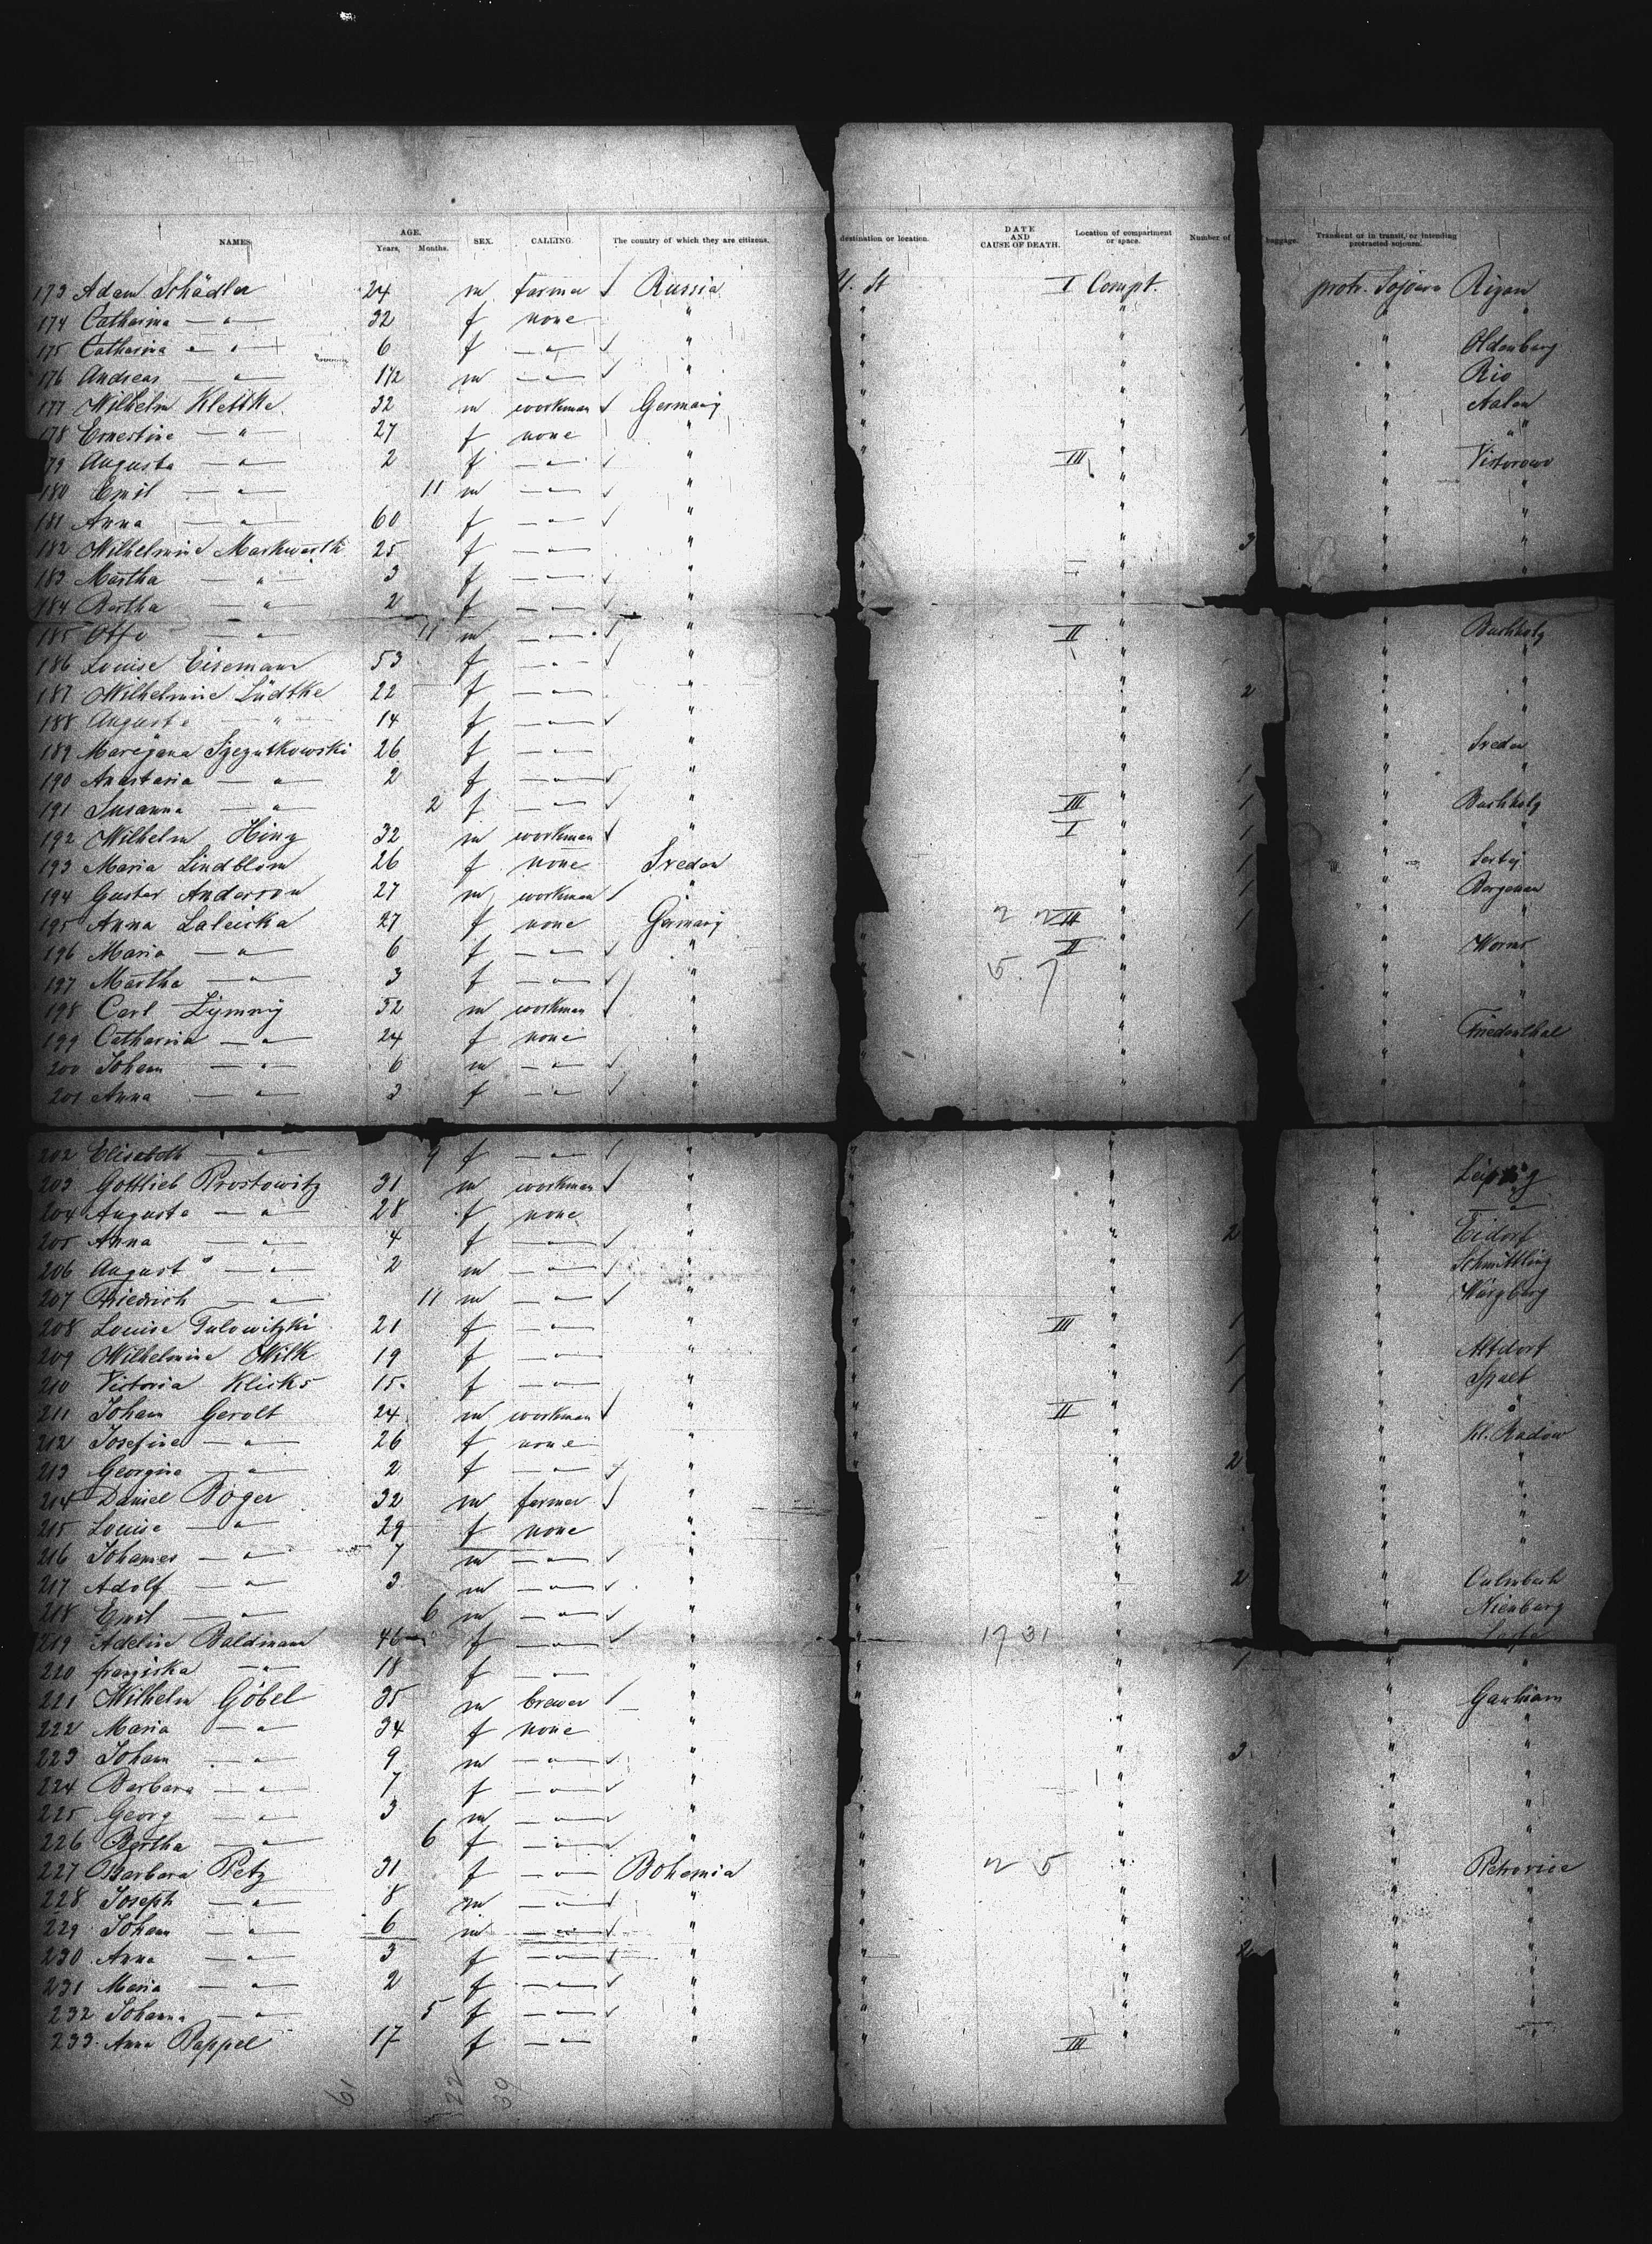 NAMES. AGE. Years, Months. SEX. CALLING. The country of which they are citizens. destination or location. DATE AND CAUSE OF DEATH. Location of compartment or space. Number of baggage. Transient us in transit, or intending protracted sojourn.
173 Adam Schädler 24 m farmer Russia U. St I Compt. protr. Sojourn
174 Catharina — " — 32 f none " " " " "
175 Catharina — " — 6 f — " — " " " " Oldenburg
176 Andreas — " — 1 1/2 m — " — " " " " Rio
177 Wilhelm Klettke 32 m workman Germany " " " Aalen
178 Ernestine — " — 27 f none " " " " "
179 Augusta — " — 2 f — " — " " III " "
180 Emil — " — 11 m — " — " " " " "
181 Anna — " — 60 f — " — " " " " "
182 Wilhelmine Markwarth 25 f — " — " " " 3 " "
183 Martha — " — 3 f — " — " " " " "
184 Bertha — " — 2 f — " — " " " "
185 Otto — " — 11 m — " — " " II " " Buchholz
186 Louise Eisemann 53 f — " — " " " " "
187 Wilhelmine Lüdtke 22 f — " — " " " 2 " "
188 Auguste — " — 14 f — " — " " " " "
189 Marejana Szezutkowski 26 f — " — " " " "
190 Anastasia — " — 2 f — " — " " " 1 " "
191 Susanna — " — 2 f — " — " " III 1 " Buchholz
192 Wilhelm Hinz 32 m workman " " I " 1 " "
193 Maria Lindblom 26 f none Sveden " " 1 "
194 Gustav Anderson 27 m workman " " " 1 "
195 Anna Laleicka 27 f none Germany " III " 1 "
196 Maria — " — 6 f — " — " " II " " Worms
197 Martha — " — 3 f — " — " " 5 7 " " "
198 Carl Zymny 52 m workman " " " " "
199 Catharina — " — 24 f none " " " " Friedenthal
200 Johann — " — 6 m — " — " " " " "
201 Anna — " — 3 f — " — " " " " "
202 Elisabeth — " — 9 f — " — " " "
203 Gottlieb Prostowitz 31 m workman " " " " Leipzig
204 Auguste — " — 28 f none " " " " — " —
205 Anna — " — 4 f — " — " " " 2 " Eidorf
206 August — " — 2 m — " — " " " "
207 Friedrich — " — 11 m — " — " " " " Würzburg
208 Louise Tulowitzki 21 f — " — " " III " 1 "
209 Wilhelmine Wilk 19 f — " — " " " 1 " Altdorf
210 Victoria Klicks 15 f — " — " " " 1 " Spalt
211 Johann Gerolt 24 m workman " " II " " "
212 Josefine — " — 26 f none " " " " Kl. Radow
213 Georgine — " — 2 f — " — " " " 2 " "
214 Daniel Boger 32 m farmer " " " " "
215 Louise — " — 29 f none " " " " "
216 Johannes — " — 7 m — " — " " " " "
217 Adolf — " — 3 m — " — " " " 2 " Culmbach
218 Emil — " — 6 m — " — " " " " Nienburg
219 Adeline Baldmann 46 f — " — " " 17 31 " "
220 franziska — " — 18 f — " — " " " 1 " "
221 Wilhelm Göbel 35 m brewer " " " "
222 Maria — " — 34 f none " " " " "
223 Johann — " — 9 m — " — " " " 3 " "
224 Barbara — " — 7 f — " — " " " " "
225 Georg — " — 3 m — " — " " " " "
226 Bertha — " — 6 f — " — " " " " "
227 Barbara Petz 31 f — " — Bohemia " 2 5 " " Petrovice
228 Joseph — " — 8 m — " — " " " " "
229 Johann — " — 6 m — " — " " " " "
230 Anna — " — 3 f — " — " " " 2 " "
231 Maria — " — 2 f — " — " " " " "
232 Johanna — " — 5 f — " — " " " " "
233 Anna Pappel 17 f — " — " " III " " "
61 22 39